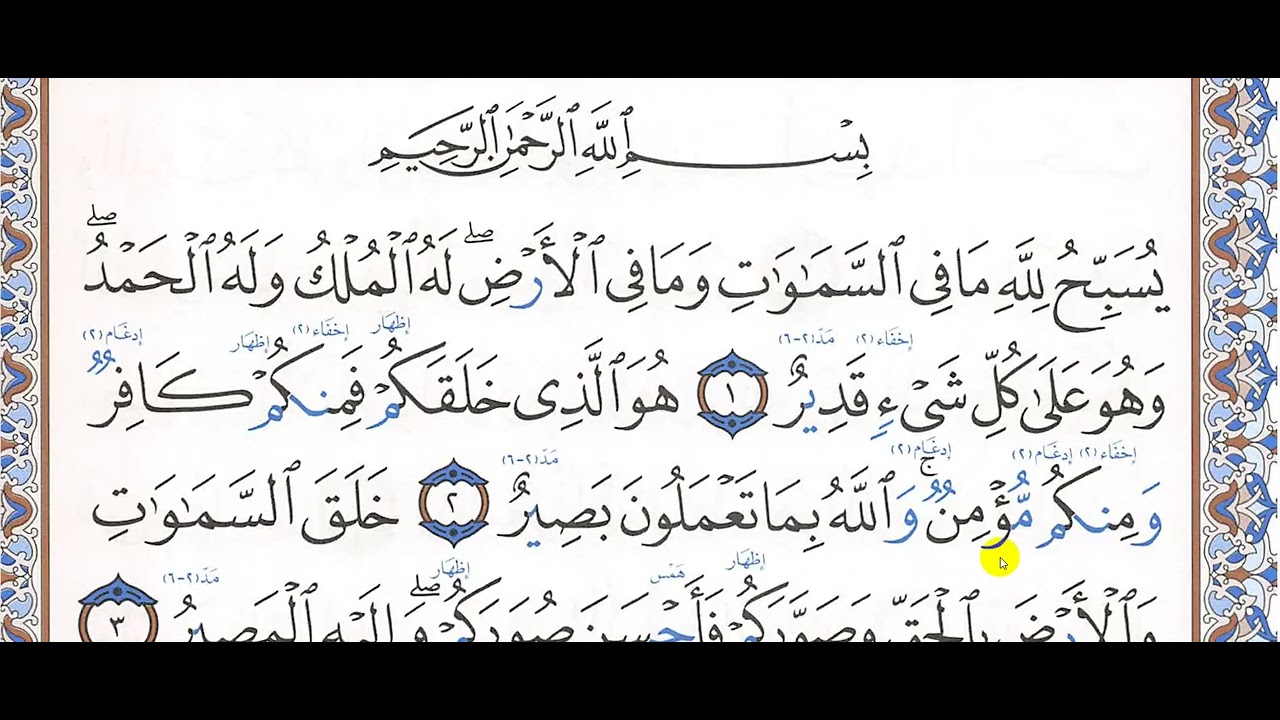 بِسْمِ ٱللَّهِ ٱلرَّحْمَٰنِ ٱلرَّحِيمِ
يُسَبِّحُ لِلَّهِ مَا فِى ٱلسَّمَٰوَٰتِ وَمَا فِى ٱلْأَرْضِ ۖ لَهُ ٱلْمُلْكُ وَلَهُ ٱلْحَمْدُ ۖ
إخفَاء (٢) مَدّ (٢-٦) إظهَار إخفَاء (٢) إظهَار إدغَام (٢)
وَهُوَ عَلَىٰ كُلِّ شَىْءٍ قَدِيرٌ ١ هُوَ ٱلَّذِى خَلَقَكُمْ فَمِنكُمْ كَافِرٌ
إخفَاء (٢) إدغَام (٢) إدغَام (٢) مَدّ (٢-٦)
وَمِنكُم مُّؤْمِنٌ ۚ وَٱللَّهُ بِمَا تَعْمَلُونَ بَصِيرٌ ٢ خَلَقَ ٱلسَّمَٰوَٰتِ
إظهَار هَمْس إظهَار مَدّ (٢-٦)
وَٱلْأَرْضَ بِٱلْحَقِّ وَصَوَّرَكُمْ فَأَحْسَنَ صُوَرَكُمْ ۖ وَإِلَيْهِ ٱلْمَصِيرُ ٣